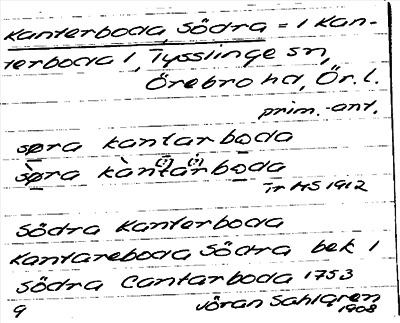 Kanterboda, Södra = 1 Kan-
terboda 1, Tysslinge sn,
Örebro hd, Ör. l.
prim.-ant.
søra kantarboda
sø̀ra kàntarboda
ir HS 1912
Södra Kanterboda
Kantareboda Södra bek 1
Södra Cantarboda 1753
9 Jöran Sahlgren
1908